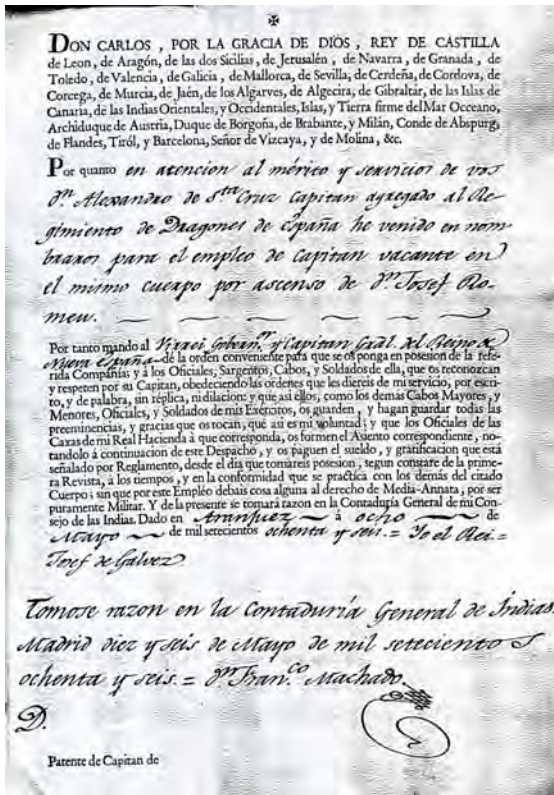 ✠
DON CARLOS , POR LA GRACIA DE DIOS , REY DE CASTILLA
de Leon, de Aragón, de las dos Sicilias, de Jerusalén , de Navarra , de Granada , de
Toledo , de Valencia , de Galicia , de Mallorca, de Sevilla, de Cerdeña, de Cordova, de
Corcega, de Murcia, de Jaén, de los Algarves, de Algecira, de Gibraltár, de las Islas de
Canaria, de las Indias Orientales, y Occidentales, Islas, y Tierra firme del Mar Occeano,
Archiduque de Austria, Duque de Borgoña, de Brabante, y Milán, Conde de Abspurg,
de Flandes, Tiról, y Barcelona, Señor de Vizcaya, y de Molina , &c.
Por quanto en atencion al mérito y servicios de vos
Dn. Alexandro de Sta. Cruz Capitan agregado al Re-
gimiento de Dragones de España he venido en nom-
braros para el empleo de Capitan vacante en
el mismo cuerpo por ascenso de Dn. Josef Ro-
meu.
Por tanto mando al Virrei Gobernr. y Capitan Gral. del Reino de
Nueva España dé la orden conveniente para que se os ponga en posesion de la refe-
rida Compañía; y á los Oficiales, Sargentos, Cabos, y Soldados de ella, que os reconozcan
y respeten por su Capitan, obedeciendo las ordenes que les diereis de mi servicio, por escri-
to, y de palabra, sin réplica, ni dilacion: y que asi ellos, como los demás Cabos Mayores, y
Menores, Oficiales, y Soldados de mis Exércitos, os guarden , y hagan guardar todas las
preeminencias, y gracias que os tocan, que asi es mi voluntad; y que los Oficiales de las
Caxas de mi Real Hacienda á que corresponda, os formen el Asiento correspondiente , no-
tandolo á continuacion de este Despacho , y os paguen el sueldo , y gratificacion que está
señalado por Reglamento, desde el dia que tomareis posesion , segun constare de la prime-
ra Revista, á los tiempos , y en la conformidad que se practíca con los demás del citado
Cuerpo ; sin que por este Empléo debais cosa alguna al derecho de Media-Annata, por ser
puramente Militar. Y de la presente se tomará razon en la Contaduría General de mi Con-
sejo de las Indias. Dado en Aranjuez á ocho de
Mayo de mil setecientos ochenta y seis.= Yo el Rei.=
Josef de Galvez
Tomose razon en la Contaduría General de Indias.
Madrid diez y seis de Mayo de mil setecientos
ochenta y seis. = Dn. Franco. Machado.
D.
Patente de Capitan de